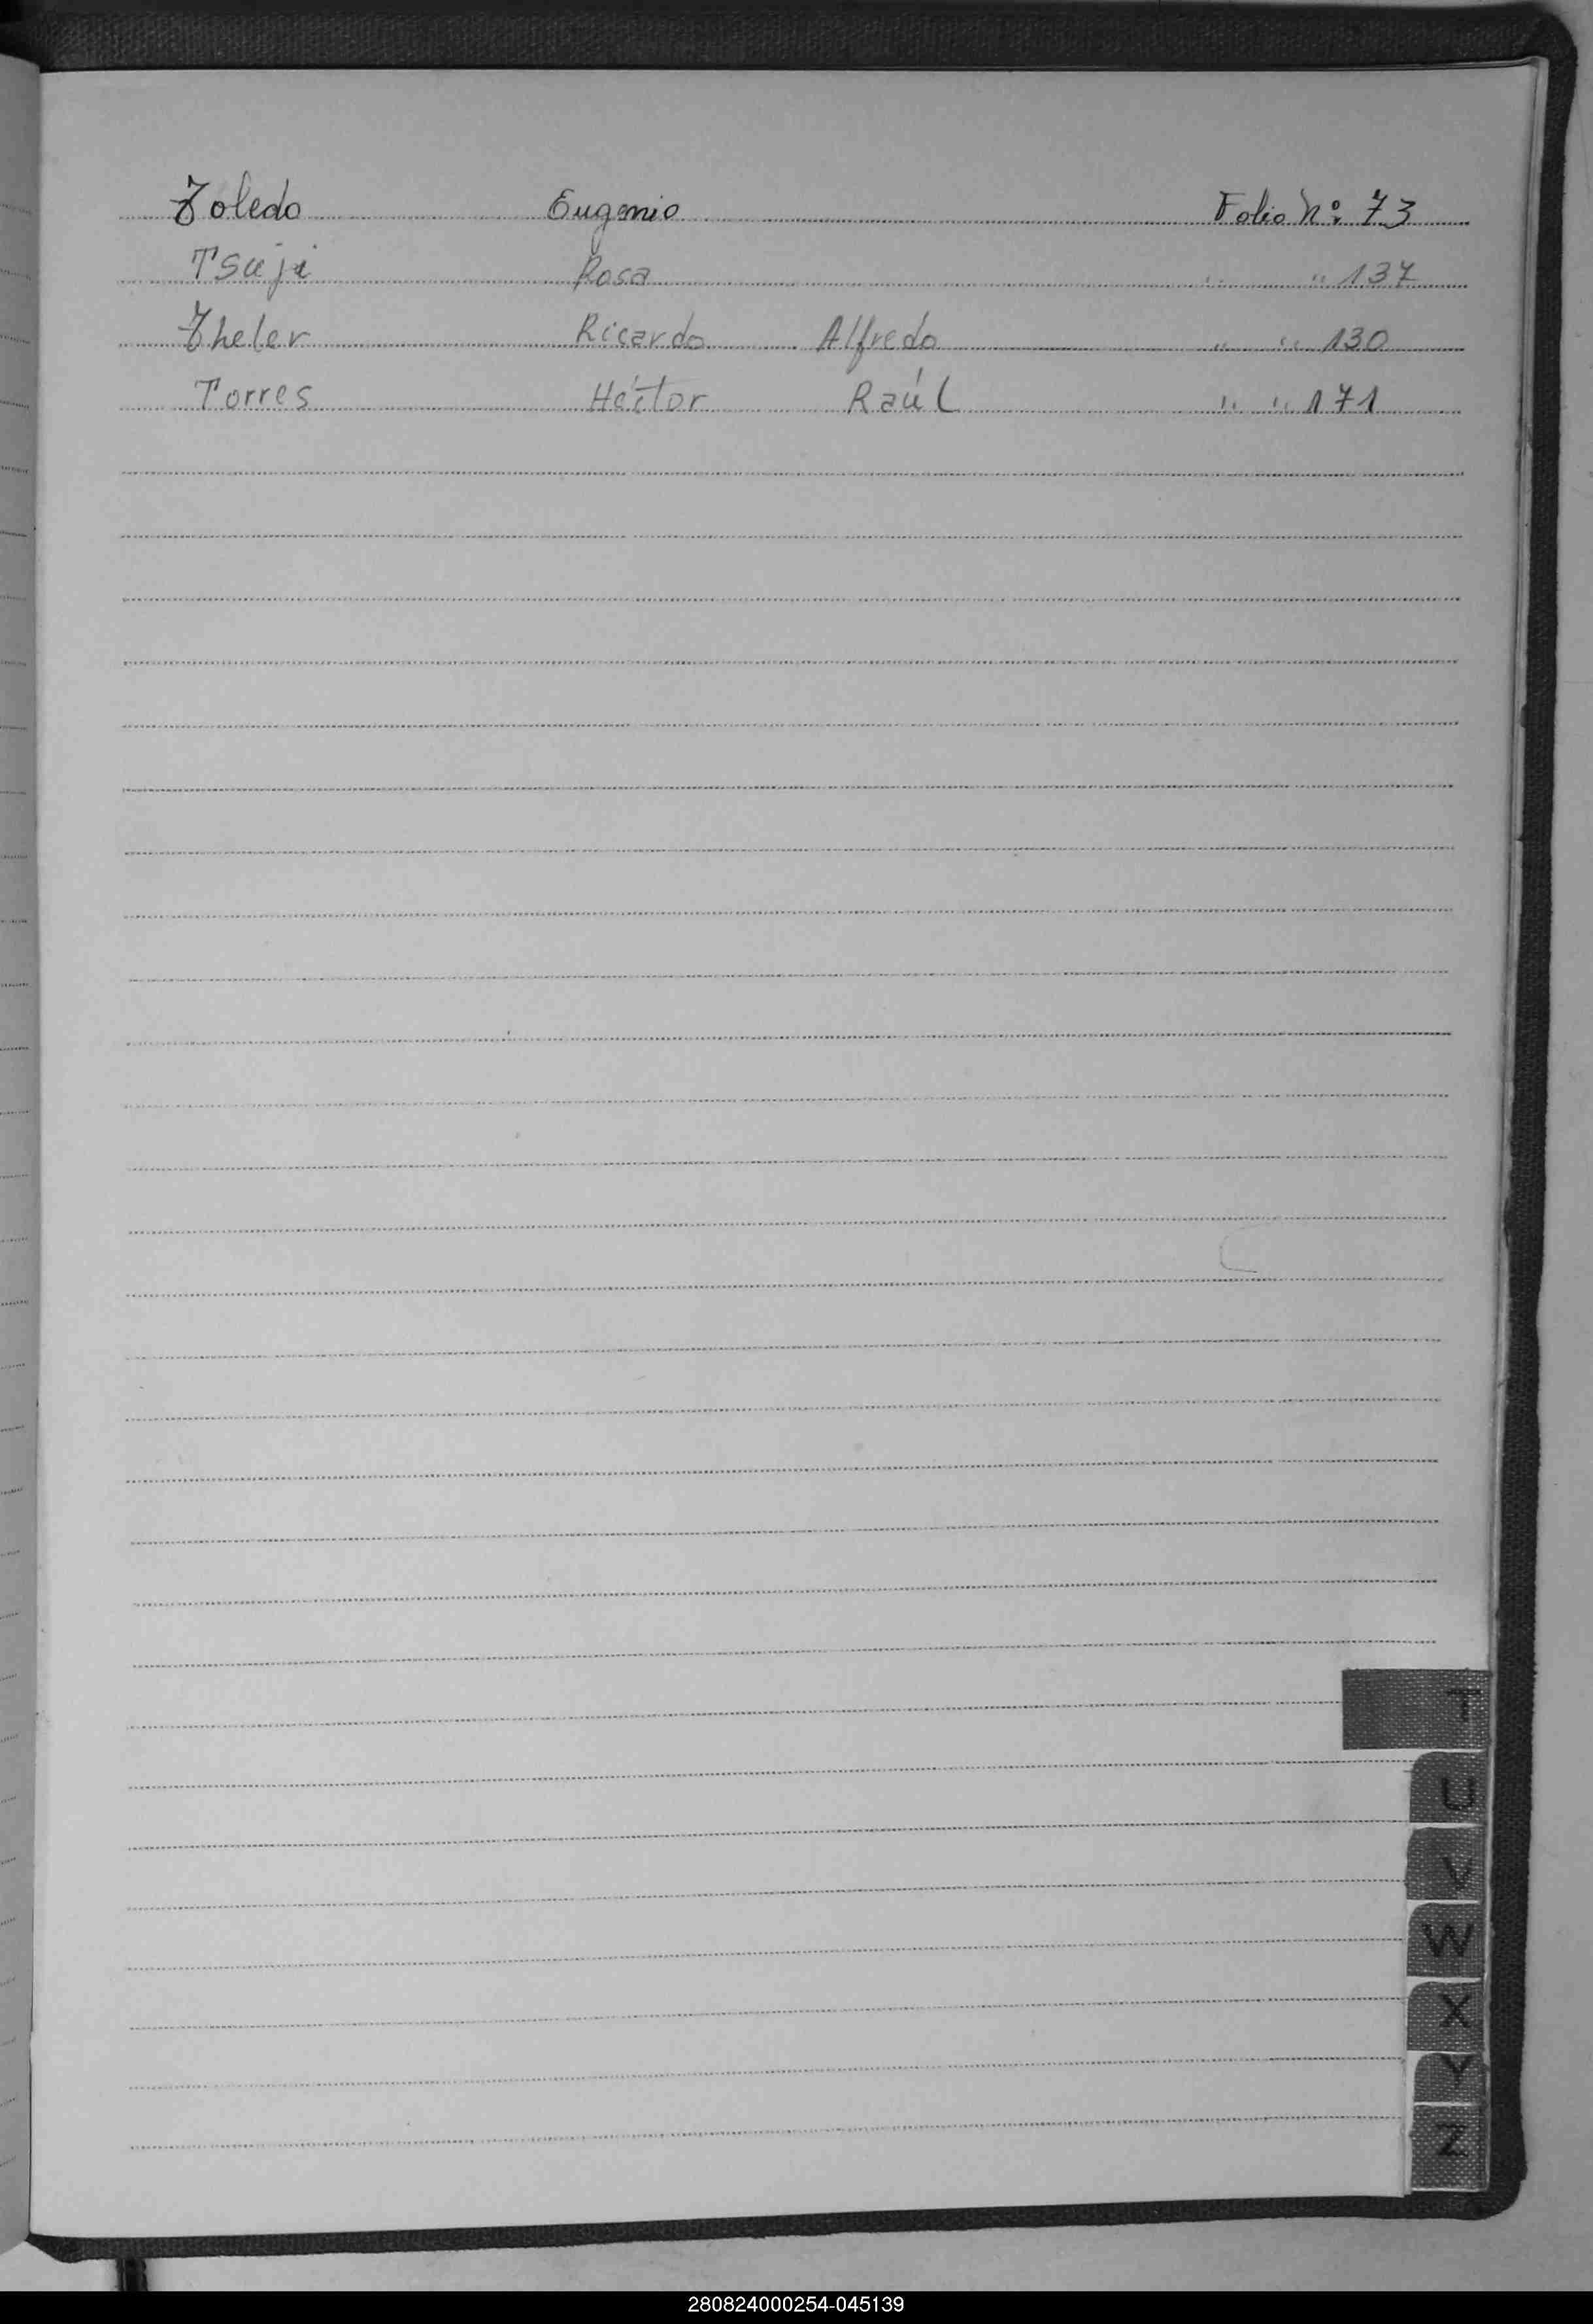 Toledo Eugenio Folio Nº 73
Tsuji Rosa " " 137
Theler Ricardo Alfredo " " 130
Torres Héctor Raúl " " 171
T
U
V
W
X
Y
Z
280824000254-045139